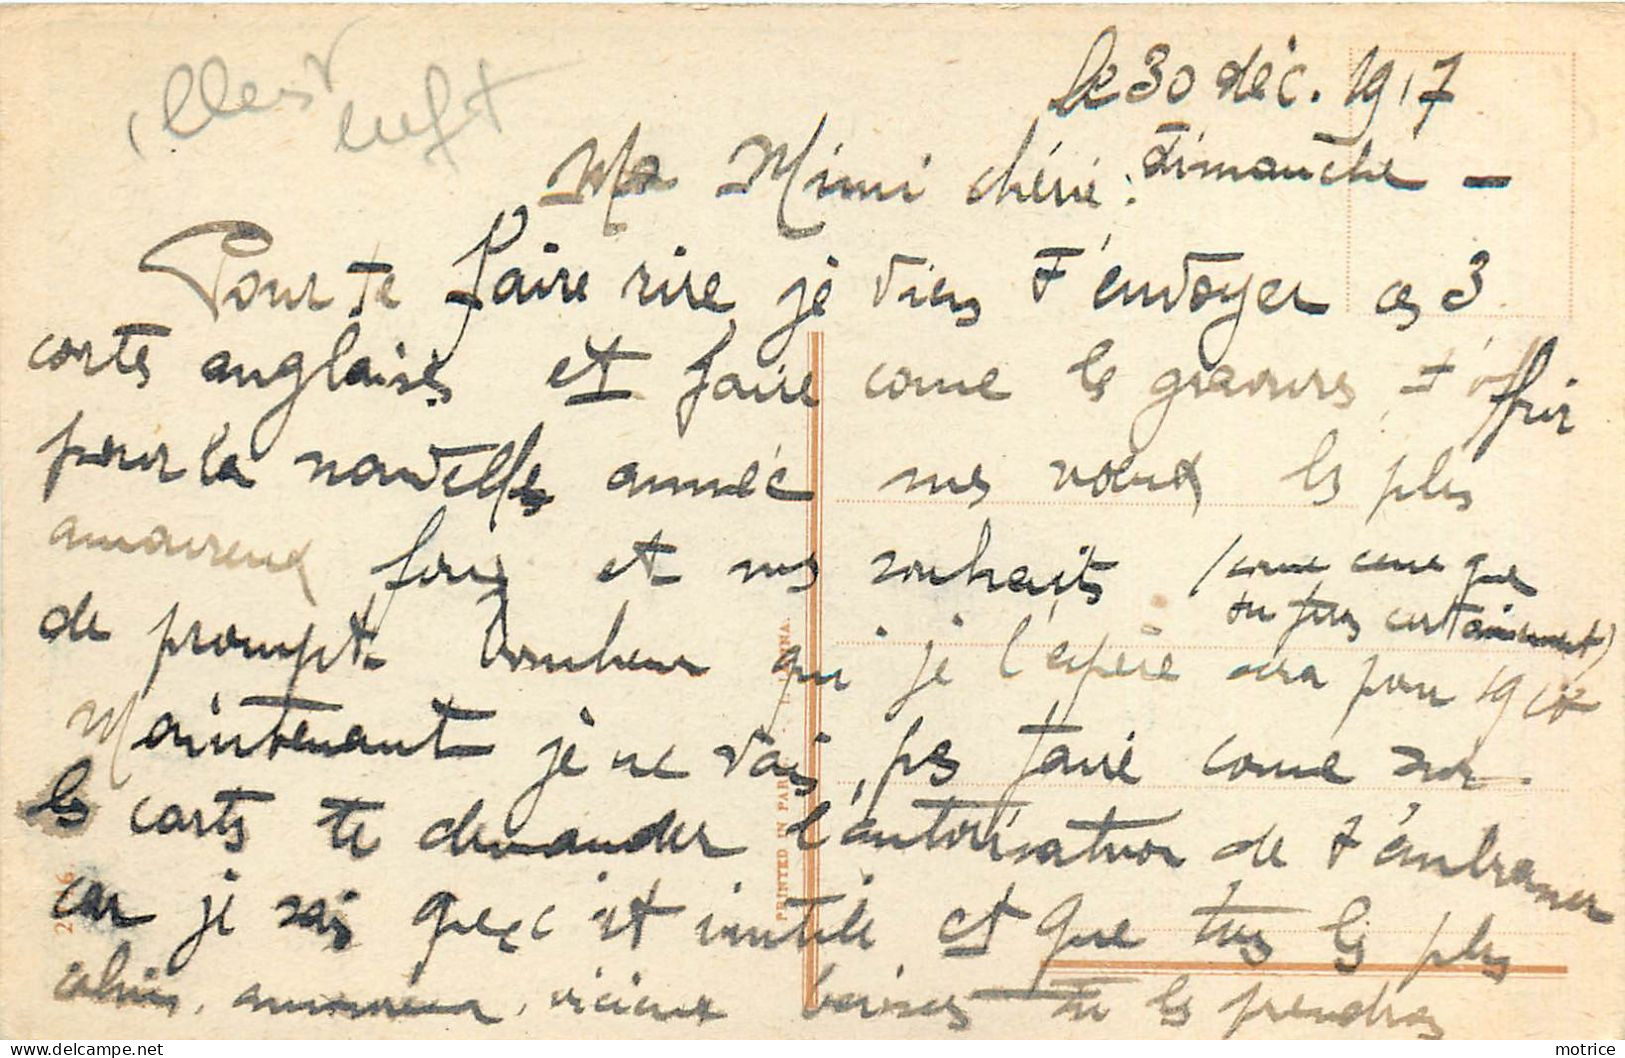 le 30 déc. 1917
dimanche -
Ma Mimi chérie:
Pour te faire rire je viens t'envoyer ces 3
cartes anglaises et faire come les gravures, t'offrir
pour la nouvelle année mes voeux les plus
amoureux fous et mes souhaits (come ceux que
tu feras certainement)
de prompt bonheur qui je l'espère sera pour 1918
Maintenant je ne vais pas faire come sur
les cartes te demander l'autorisation de t'embrasser
car je sais que c'est inutile et que tous les plus
calins, amoureux, vicieux baisers tu les prendras
PRINTED IN
motrice